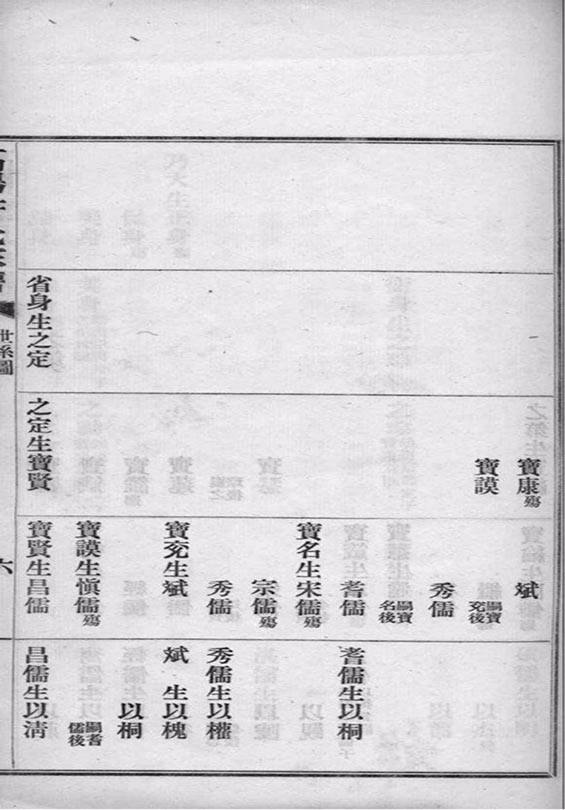 省身生之定
寶康殤
寶謨
之定生寶賢
斌
嗣寶兗後
秀儒
嗣寶名後
耆儒
寶名生宋儒殤
宗儒殤
秀儒
寶兗生斌
寶謨生愼儒殤
寶賢生昌儒
耆儒生以桐
秀儒生以權
斌 生以槐
以桐
嗣耆儒後
昌儒生以淸
世系圖
六